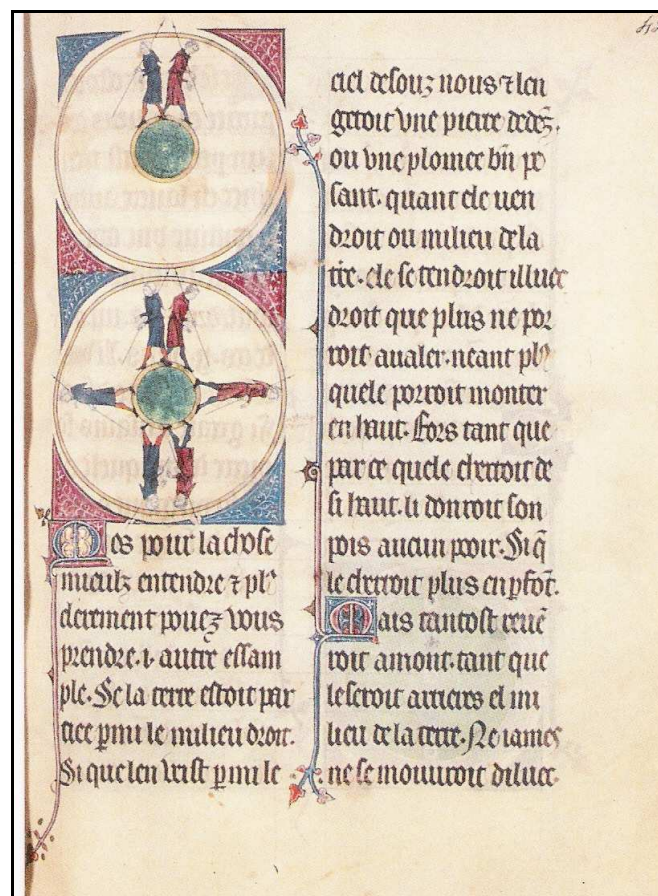 Mes pour la chose
mieulz entendre ⁊ plꝰ
clerement pouez vous
prendre .i. autre essam
ple. Se la terre estoit par
tiee pmi le milieu droit.
Si que len veist pmi le
ciel desouz nous ⁊ len
getoit vne pierre dedēs.
ou vne plomee bn̄ pe
sant. quant ele uen
droit ou milieu de la
tr̄e. ele se tendroit illuec
droit que plus ne por
roit aualer. neant plꝰ
quele porroit monter
en haut. Fors tant que
par ce quele cherroit de
si haut. li donroit son
pois aucun pooir. Si q̄
le cherroit plus en pfōt.
Mais tantost reuē
roit amont. tant que
le seroit arrieres el mi
lieu de la terre. Ne iames
ne se mouuroit diluec.